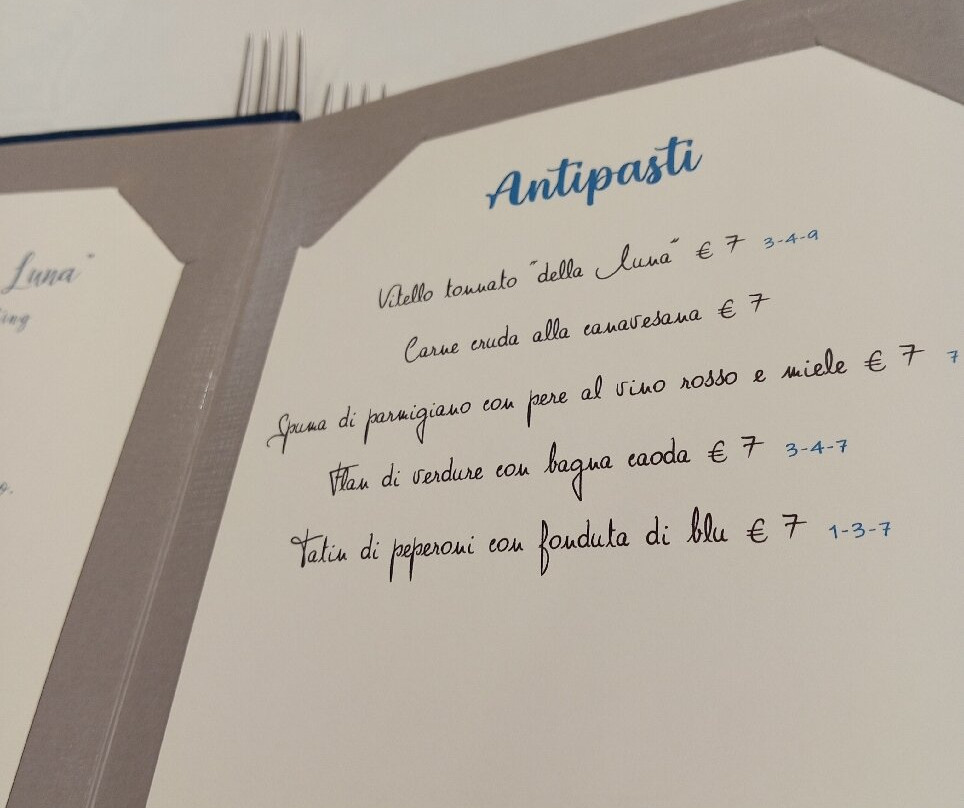 Luna"
ing
o.
Antipasti
Vitello tonnato "della luna" € 7 3-4-9
Carne cruda alla canavesana € 7
Spuma di parmigiano con pere al vino rosso e miele € 7 7
Flan di verdure con bagna caoda € 7 3-4-7
Tatin di peperoni con fonduta di blu € 7 1-3-7